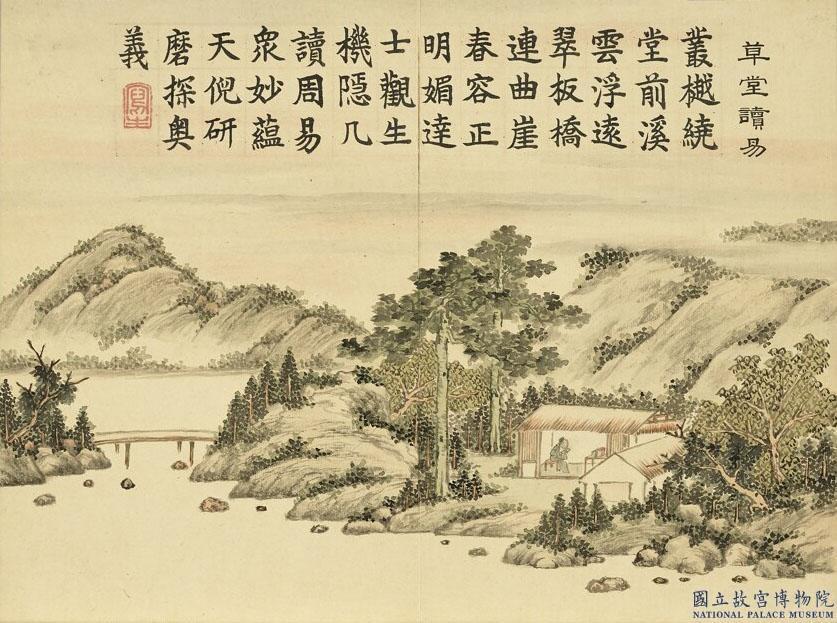 草堂讀易
叢樾繞
堂前溪
雲浮遠
翠板橋
連曲崖
春容正
明媚達
士觀生
機隱几
讀周易
衆妙蘊
天倪研
磨探奥
義
國立故宮博物院
NATIONAL PALACE MUSEUM